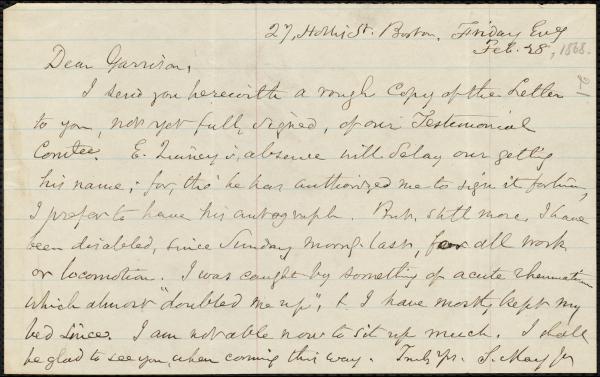 27, Hollis St. Boston, Friday Eve'g
Feb. 28, 1868.
Dear Garrison,
I send you herewith a rough Copy of the Letter
to you, not yet fully signed, of our Testimonial
Comtee. E. Quincy's absence will delay our getting
his name; for, tho' he has authorized me to sign it for him,
I prefer to have his autograph. But, still more, I have
been disabled, since Sunday morng. last, for all work
or locomotion. I was caught by something of acute rheumatism
which almost "doubled me up", & I have mostly kept my
bed since. I am not able now to sit up much. I shall
be glad to see you, when coming this way. Truly Yrs. S. May Jr